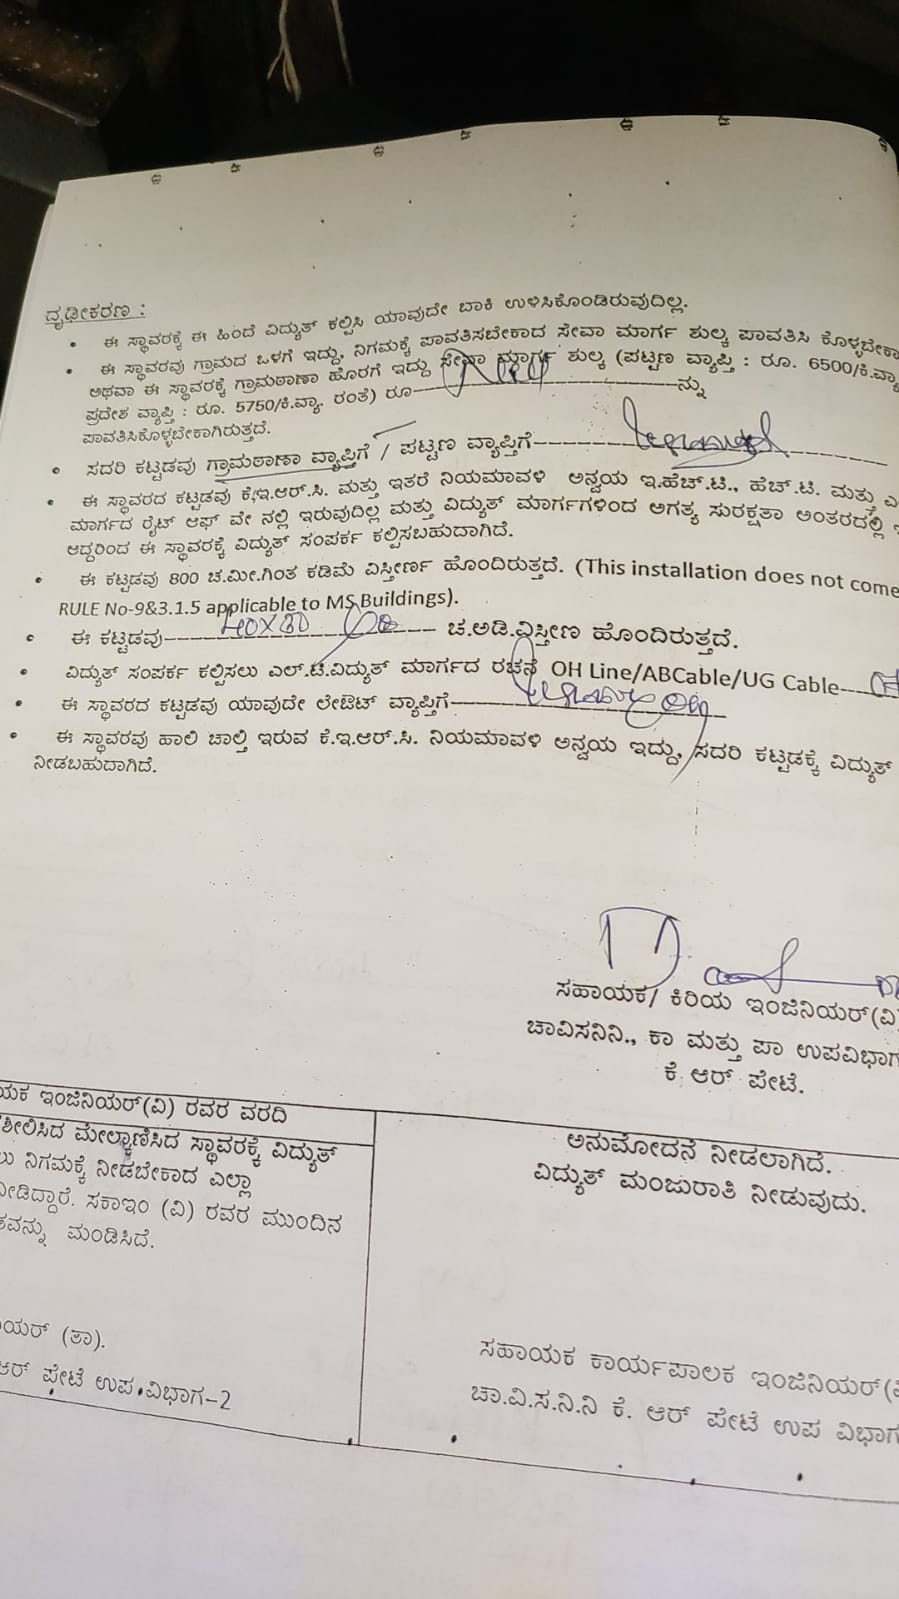 ದೃಢೀಕರಣ :
• ಈ ಸ್ಥಾವರಕ್ಕೆ ಈ ಹಿಂದೆ ವಿದ್ಯುತ್ ಕಲ್ಪಿಸಿ ಯಾವುದೇ ಬಾಕಿ ಉಳಿಸಿಕೊಂಡಿರುವುದಿಲ್ಲ.
• ಈ ಸ್ಥಾವರವು ಗ್ರಾಮದ ಒಳಗೆ ಇದ್ದು, ನಿಗಮಕ್ಕೆ ಪಾವತಿಸಬೇಕಾದ ಸೇವಾ ಮಾರ್ಗ ಶುಲ್ಕ ಪಾವತಿಸಿ ಕೊಳ್ಳಬೇಕಾ
ಅಥವಾ ಈ ಸ್ಥಾವರಕ್ಕೆ ಗ್ರಾಮಠಾಣಾ ಹೊರಗೆ ಇದ್ದು ಸೇವಾ ಮಾರ್ಗ ಶುಲ್ಕ (ಪಟ್ಟಣ ವ್ಯಾಪ್ತಿ : ರೂ. 6500/ಕಿ.ವ್ಯಾ
ಪ್ರದೇಶ ವ್ಯಾಪ್ತಿ : ರೂ. 5750/ಕಿ.ವ್ಯಾ. ರಂತೆ) ರೂ-------------------------ನ್ನು
ಪಾವತಿಸಿಕೊಳ್ಳಬೇಕಾಗಿರುತ್ತದೆ.
• ಸದರಿ ಕಟ್ಟಡವು ಗ್ರಾಮಠಾಣಾ ವ್ಯಾಪ್ತಿಗೆ / ಪಟ್ಟಣ ವ್ಯಾಪ್ತಿಗೆ-------------------------
• ಈ ಸ್ಥಾವರದ ಕಟ್ಟಡವು ಕೆ.ಇ.ಆರ್.ಸಿ. ಮತ್ತು ಇತರೆ ನಿಯಮಾವಳಿ ಅನ್ವಯ ಇ.ಹೆಚ್.ಟಿ., ಹೆಚ್.ಟಿ. ಮತ್ತು ಎ
ಮಾರ್ಗದ ರೈಟ್ ಆಫ್ ವೇ ನಲ್ಲಿ ಇರುವುದಿಲ್ಲ ಮತ್ತು ವಿದ್ಯುತ್ ಮಾರ್ಗಗಳಿಂದ ಅಗತ್ಯ ಸುರಕ್ಷತಾ ಅಂತರದಲ್ಲಿ
ಆದ್ದರಿಂದ ಈ ಸ್ಥಾವರಕ್ಕೆ ವಿದ್ಯುತ್ ಸಂಪರ್ಕ ಕಲ್ಪಿಸಬಹುದಾಗಿದೆ.
• ಈ ಕಟ್ಟಡವು 800 ಚ.ಮೀ.ಗಿಂತ ಕಡಿಮೆ ವಿಸ್ತೀರ್ಣ ಹೊಂದಿರುತ್ತದೆ. (This installation does not come
RULE No-9&3.1.5 applicable to MS Buildings).
• ಈ ಕಟ್ಟಡವು------------------------- ಚ.ಅಡಿ.ವಿಸ್ತೀಣ ಹೊಂದಿರುತ್ತದೆ.
• ವಿದ್ಯುತ್ ಸಂಪರ್ಕ ಕಲ್ಪಿಸಲು ಎಲ್.ಟಿ.ವಿದ್ಯುತ್ ಮಾರ್ಗದ ರಚನೆ OH Line/ABCable/UG Cable----
• ಈ ಸ್ಥಾವರದ ಕಟ್ಟಡವು ಯಾವುದೇ ಲೇಔಟ್ ವ್ಯಾಪ್ತಿಗೆ-------------------------
• ಈ ಸ್ಥಾವರವು ಹಾಲಿ ಚಾಲ್ತಿ ಇರುವ ಕೆ.ಇ.ಆರ್.ಸಿ. ನಿಯಮಾವಳಿ ಅನ್ವಯ ಇದ್ದು, ಸದರಿ ಕಟ್ಟಡಕ್ಕೆ ವಿದ್ಯುತ್
ನೀಡಬಹುದಾಗಿದೆ.
ಸಹಾಯಕ/ ಕಿರಿಯ ಇಂಜಿನಿಯರ್(ವಿ)
ಚಾವಿಸನಿನಿ., ಕಾ ಮತ್ತು ಪಾ ಉಪವಿಭಾಗ
ಕೆ. ಆರ್ ಪೇಟೆ.
ಯಕ ಇಂಜಿನಿಯರ್(ವಿ) ರವರ ವರದಿ
ಶೀಲಿಸಿದ ಮೇಲ್ಕಾಣಿಸಿದ ಸ್ಥಾವರಕ್ಕೆ ವಿದ್ಯುತ್
ಲು ನಿಗಮಕ್ಕೆ ನೀಡಬೇಕಾದ ಎಲ್ಲಾ
ನೀಡಿದ್ದಾರೆ. ಸಕಾಇಂ (ವಿ) ರವರ ಮುಂದಿನ
ಶವನ್ನು ಮಂಡಿಸಿದೆ.
ಯರ್ (ತಾ).
ಆರ್ ಪೇಟೆ ಉಪ ವಿಭಾಗ-2
ಅನುಮೋದನೆ ನೀಡಲಾಗಿದೆ.
ವಿದ್ಯುತ್ ಮಂಜುರಾತಿ ನೀಡುವುದು.
ಸಹಾಯಕ ಕಾರ್ಯಪಾಲಕ ಇಂಜಿನಿಯರ್(ವಿ
ಚಾ.ವಿ.ಸ.ನಿ.ನಿ ಕೆ. ಆರ್ ಪೇಟೆ ಉಪ ವಿಭಾಗ